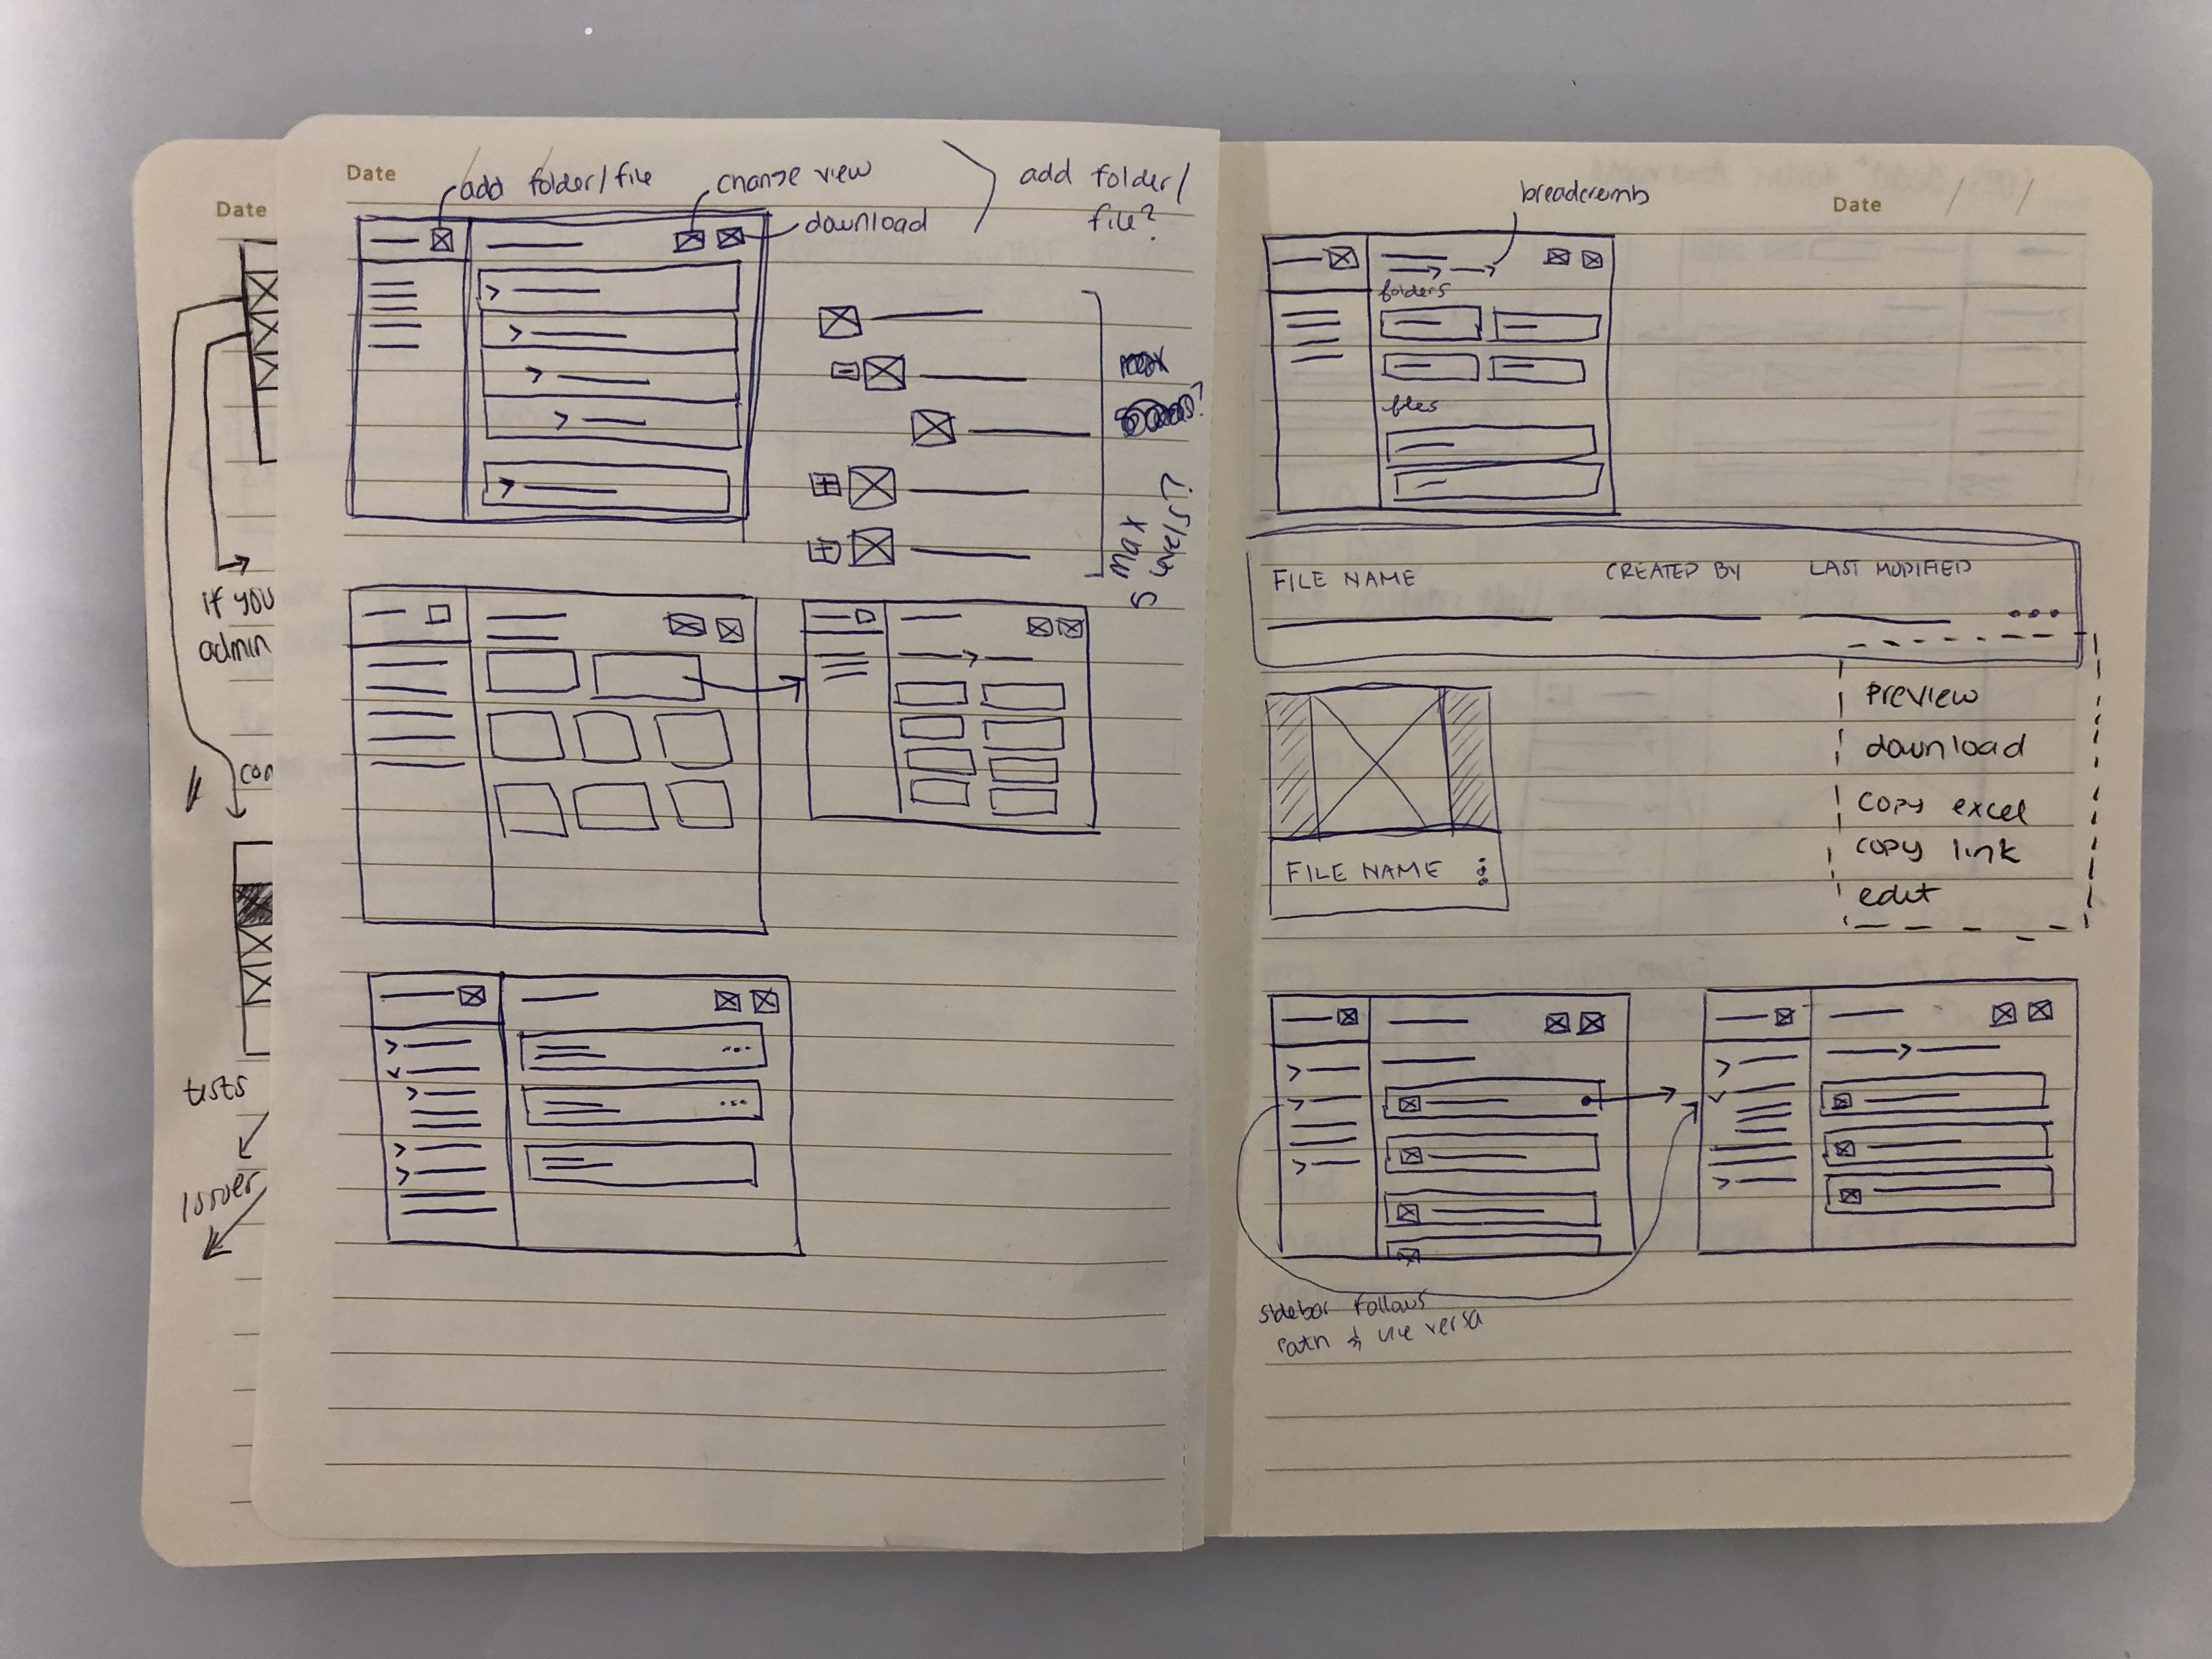 Date
if you
admin
tests
Date
add folder/file
change view
download
add folder/
file?
max
5 levels?
Date
breadcrumb
folders
files
FILE NAME
CREATED BY
LAST MODIFIED
preview
download
copy excel
copy link
edit
FILE NAME
sidebar follows
path & vice versa